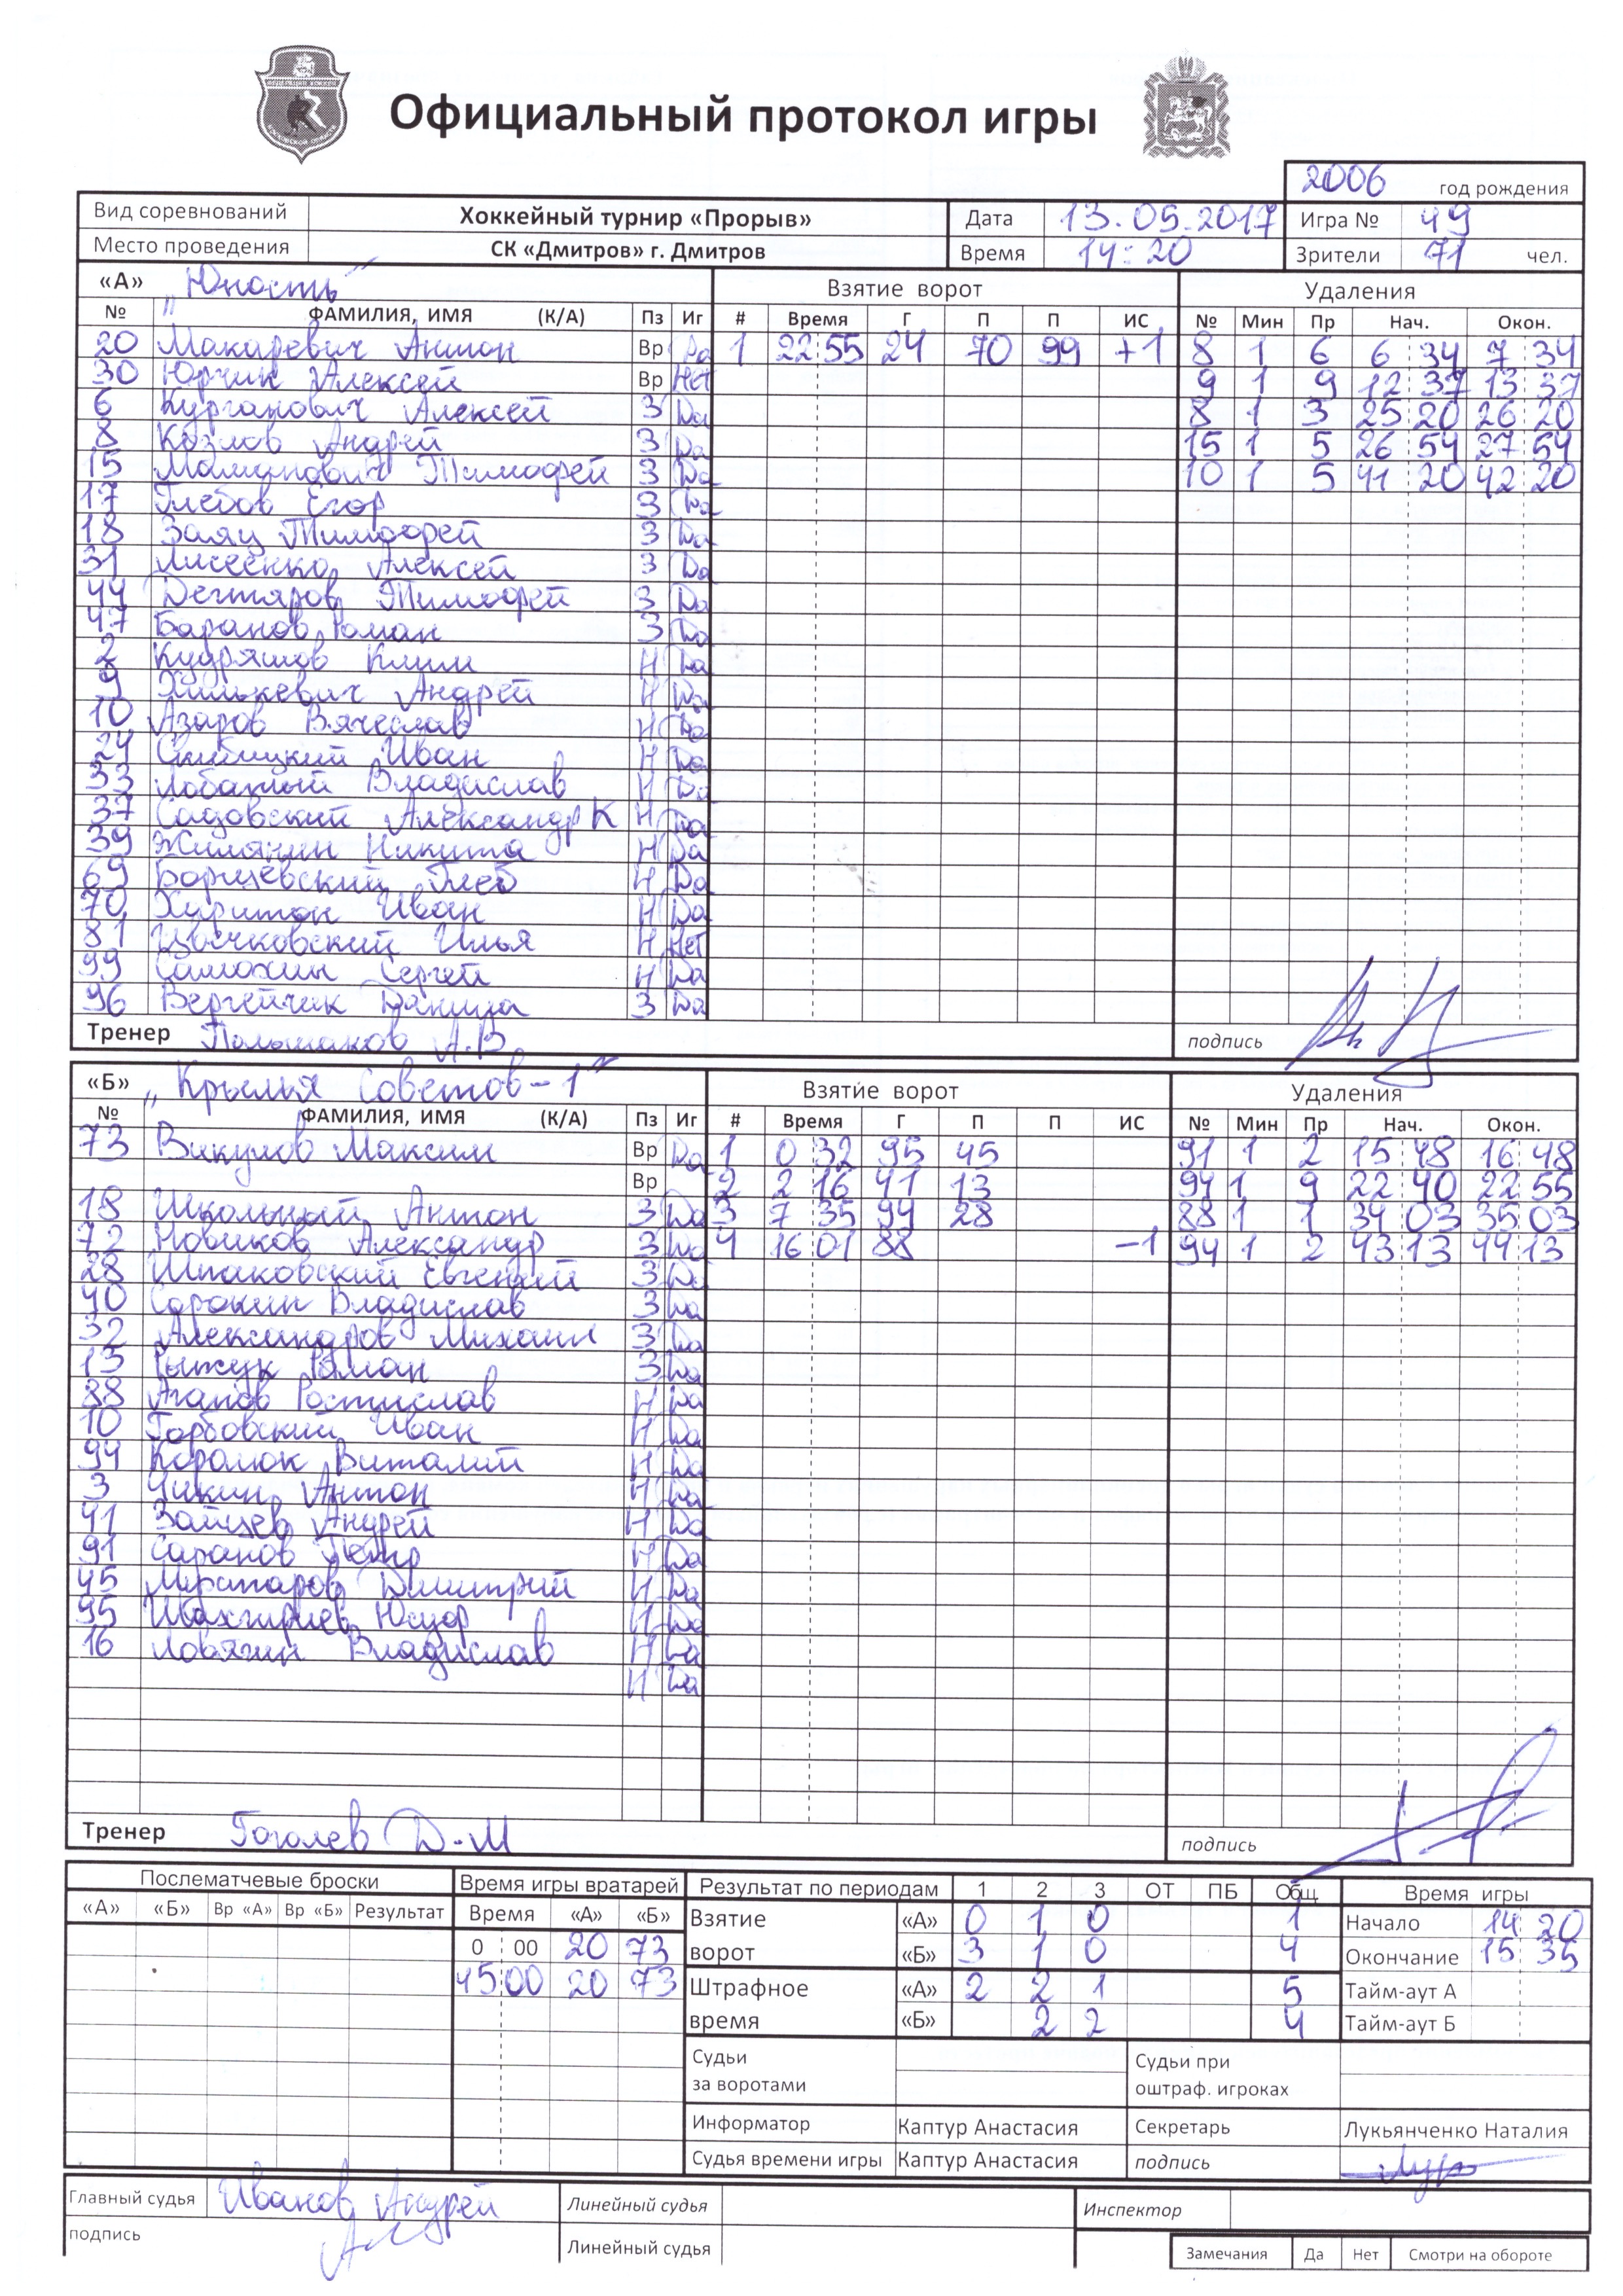 Официальный протокол игры
2006 год рождения
Вид соревнований Хоккейный турнир «Прорыв» Дата 13.05.2017 Игра № 49
Место проведения СК «Дмитров» г. Дмитров Время 14:20 Зрители 71 чел.
«А» "Юность" Взятие ворот Удаления
№ ФАМИЛИЯ, ИМЯ (К/А) Пз Иг # Время Г П П ИС № Мин Пр Нач. Окон.
20 Макаревич Антон Вр Да 1 22 55 24 70 99 +1 8 1 6 6 34 7 34
30 Юрчик Алексей Вр Нет 9 1 9 12 37 13 37
6 Курганович Алексей З Да 8 1 3 25 20 26 20
8 Козлов Андрей З Да 15 1 5 26 54 27 54
15 Тимофей З Да 10 1 5 41 20 42 20
17 Глебов Егор З Да
18 Заяц Тимофей З Да
31 Лисеенко Алексей З Да
44 Дегтяров Тимофей З Да
47 Баранов Роман З Да
2 Кудряшов Клим Н Да
9 Хилькевич Андрей Н Да
10 Азаров Вячеслав Н Да
24 Скибицкий Иван Н Да
33 Лобатый Владислав Н Да
37 Садовский Александр К Н Да
39 Жилянин Никита Н Да
69 Борщевский Глеб Н Да
70 Харитон Иван Н Да
81 Илья Н Нет
99 Самохин Сергей Н Да
96 Вергейчик Данила З Да
Тренер Польшаков А.В. подпись
«Б» "Крылья Советов-1" Взятие ворот Удаления
№ ФАМИЛИЯ, ИМЯ (К/А) Пз Иг # Время Г П П ИС № Мин Пр Нач. Окон.
73 Викулов Максим Вр Да 1 0 32 95 45 91 1 2 15 48 16 48
Вр 2 2 16 41 13 94 1 9 22 40 22 55
18 Школьный Антон З Да 3 7 35 94 28 88 1 1 34 03 35 03
72 Новиков Александр З Да 4 16 01 88 -1 94 1 2 43 13 44 13
28 Шпаковский Евгений З Да
40 Сорокин Владислав З Да
32 Александров Михаил З Да
13 Рыжук Роман З Да
88 Агапов Ростислав Н Да
10 Горбовский Иван Н Да
94 Королюк Виталий Н Да
3 Чикин Антон Н Да
41 Зайцев Андрей Н Да
91 Саранов Петр Н Да
45 Дмитрий Н Да
95 Н Да
16 Ловягин Владислав Н Да
Н Да
Тренер Гоголев Д.М подпись
Послематчевые броски Время игры вратарей Результат по периодам 1 2 3 ОТ ПБ Общ. Время игры
«А» «Б» Вр «А» Вр «Б» Результат Время «А» «Б» Взятие «А» 0 1 0 1 Начало 14 20
0 00 20 73 ворот «Б» 3 1 0 4 Окончание 15 35
45 00 20 73 Штрафное «А» 2 2 1 5 Тайм-аут А
время «Б» 2 2 4 Тайм-аут Б
Судьи Судьи при
за воротами оштраф. игроках
Информатор Каптур Анастасия Секретарь Лукьянченко Наталия
Судья времени игры Каптур Анастасия подпись
Главный судья Иванов Андрей Линейный судья Инспектор
подпись Линейный судья
Замечания Да Нет Смотри на обороте